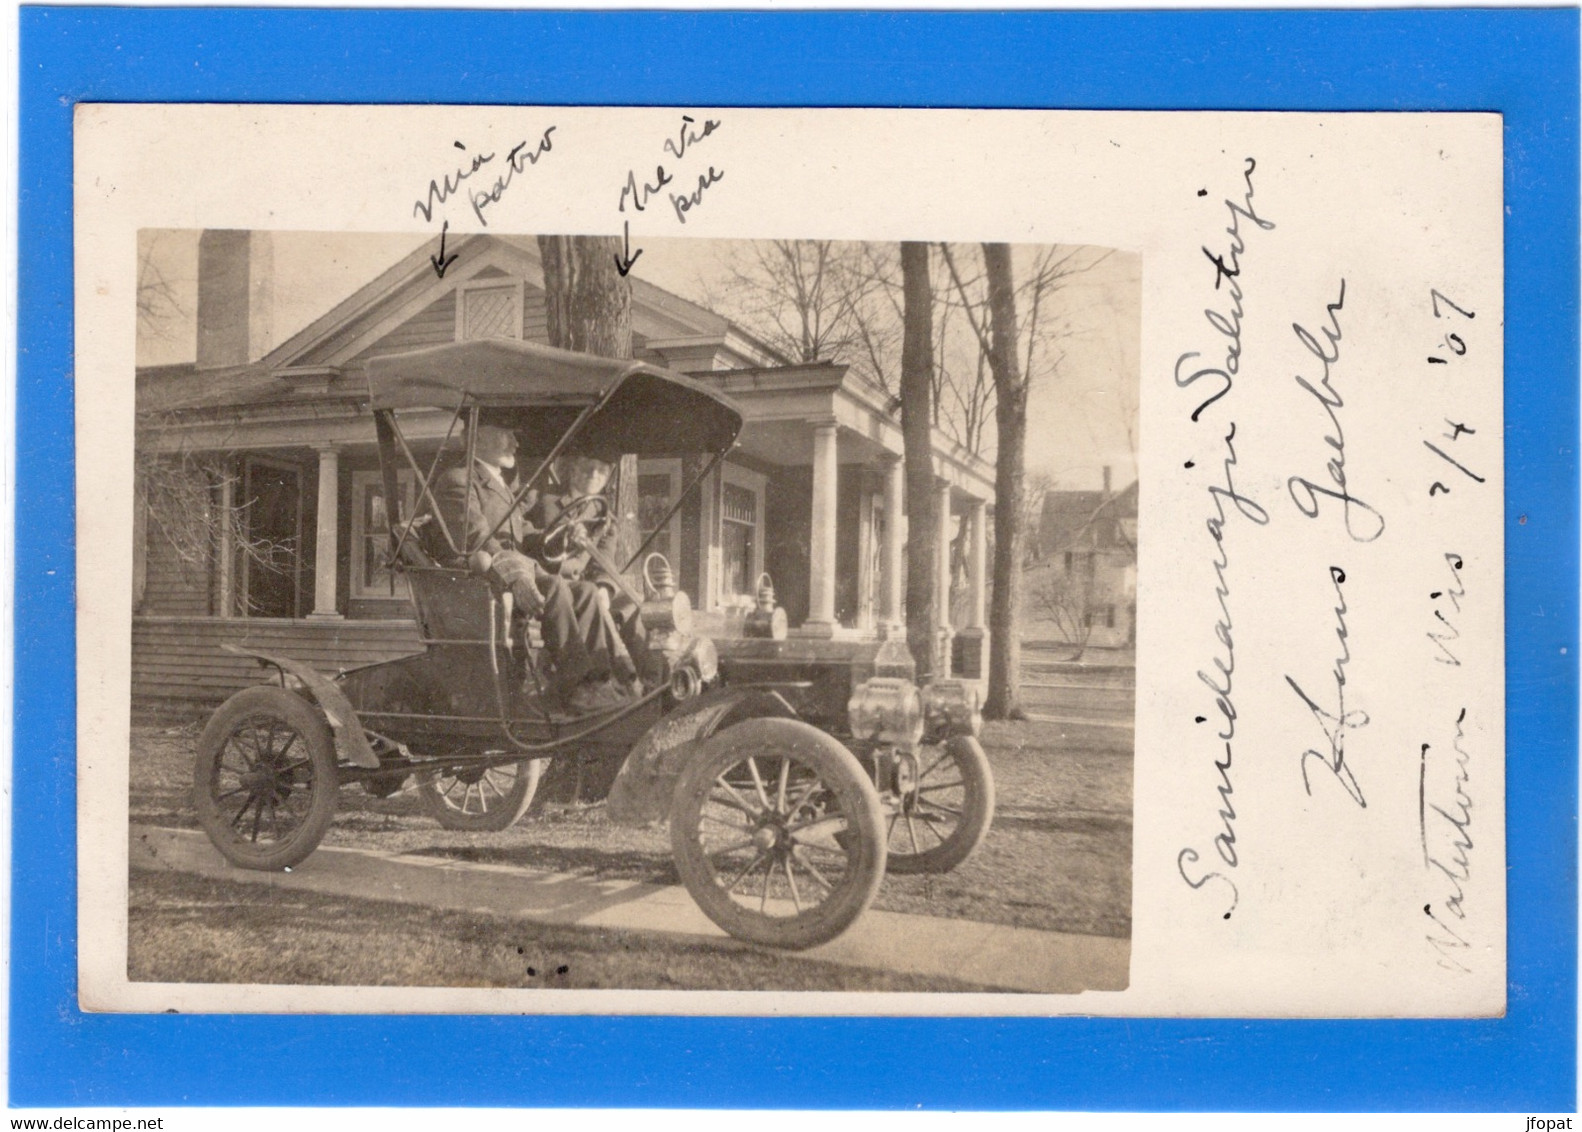 Mia
patro
Tre Via
pove
Samideanajn Salutojn
Hans Gaebler
Watertown Wis 7/4 '07
www.delcampe.net
jfopat